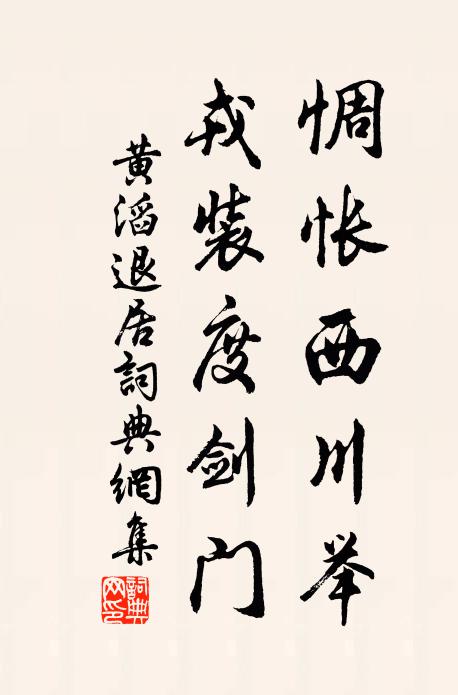 惆怅西川举
戎装度剑门
黄滔退居詞典網集
詞典網印